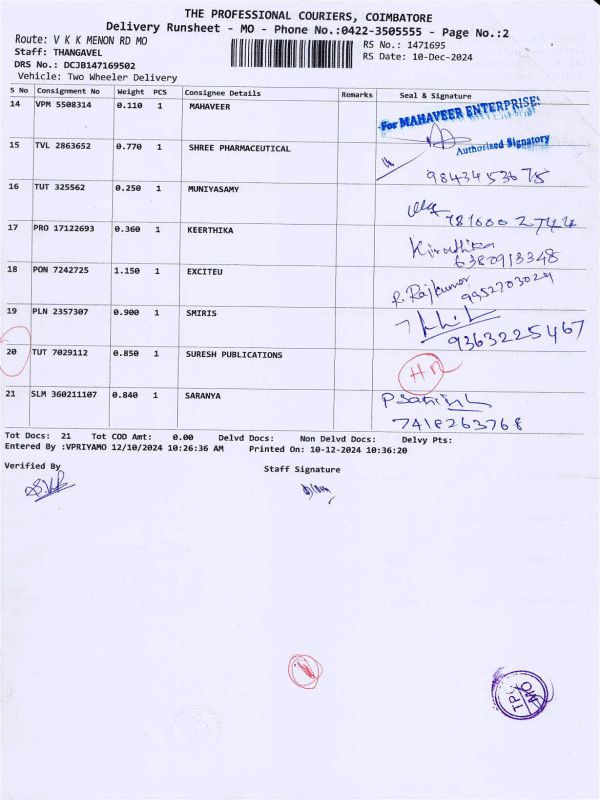 THE PROFESSIONAL COURIERS, COIMBATORE
Delivery Runsheet - MO - Phone No.:0422-3505555 - Page No.:2
Route: V K K MENON RD MO
RS No.: 1471695
Staff: THANGAVEL
RS Date: 10-Dec-2024
DRS No.: DCJB147169502
Vehicle: Two Wheeler Delivery
S No Consignment No Weight PCS Consignee Details Remarks Seal & Signature
14 VPM 5508314 0.110 1 MAHAVEER
For MAHAVEER ENTERPRISES
Authorised Signatory
15 TVL 2863652 0.770 1 SHREE PHARMACEUTICAL
9843453675
16 TUT 325562 0.250 1 MUNIYASAMY
7816002744
17 PRO 17122693 0.360 1 KEERTHIKA
Kirouthika
6380913348
18 PON 7242725 1.150 1 EXCITEU
R. Rajkumar
9952703029
19 PLN 2357307 0.900 1 SMIRIS
9363225467
20 TUT 7029112 0.850 1 SURESH PUBLICATIONS
21 SLM 360211107 0.840 1 SARANYA
7418263768
Tot Docs: 21 Tot COD Amt: 0.00 Delvd Docs: Non Delvd Docs: Delvy Pts:
Entered By :VPRIYAMO 12/10/2024 10:26:36 AM Printed On: 10-12-2024 10:36:20
Verified By
Staff Signature
TPC
MO